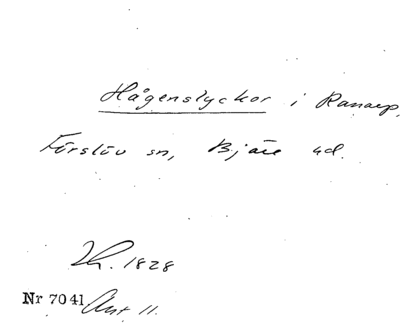 Hågenslyckor i Ranarp,
Förslöv sn, Bjäre hd.
Lh. 1828
Nr 7041 Ant 11.